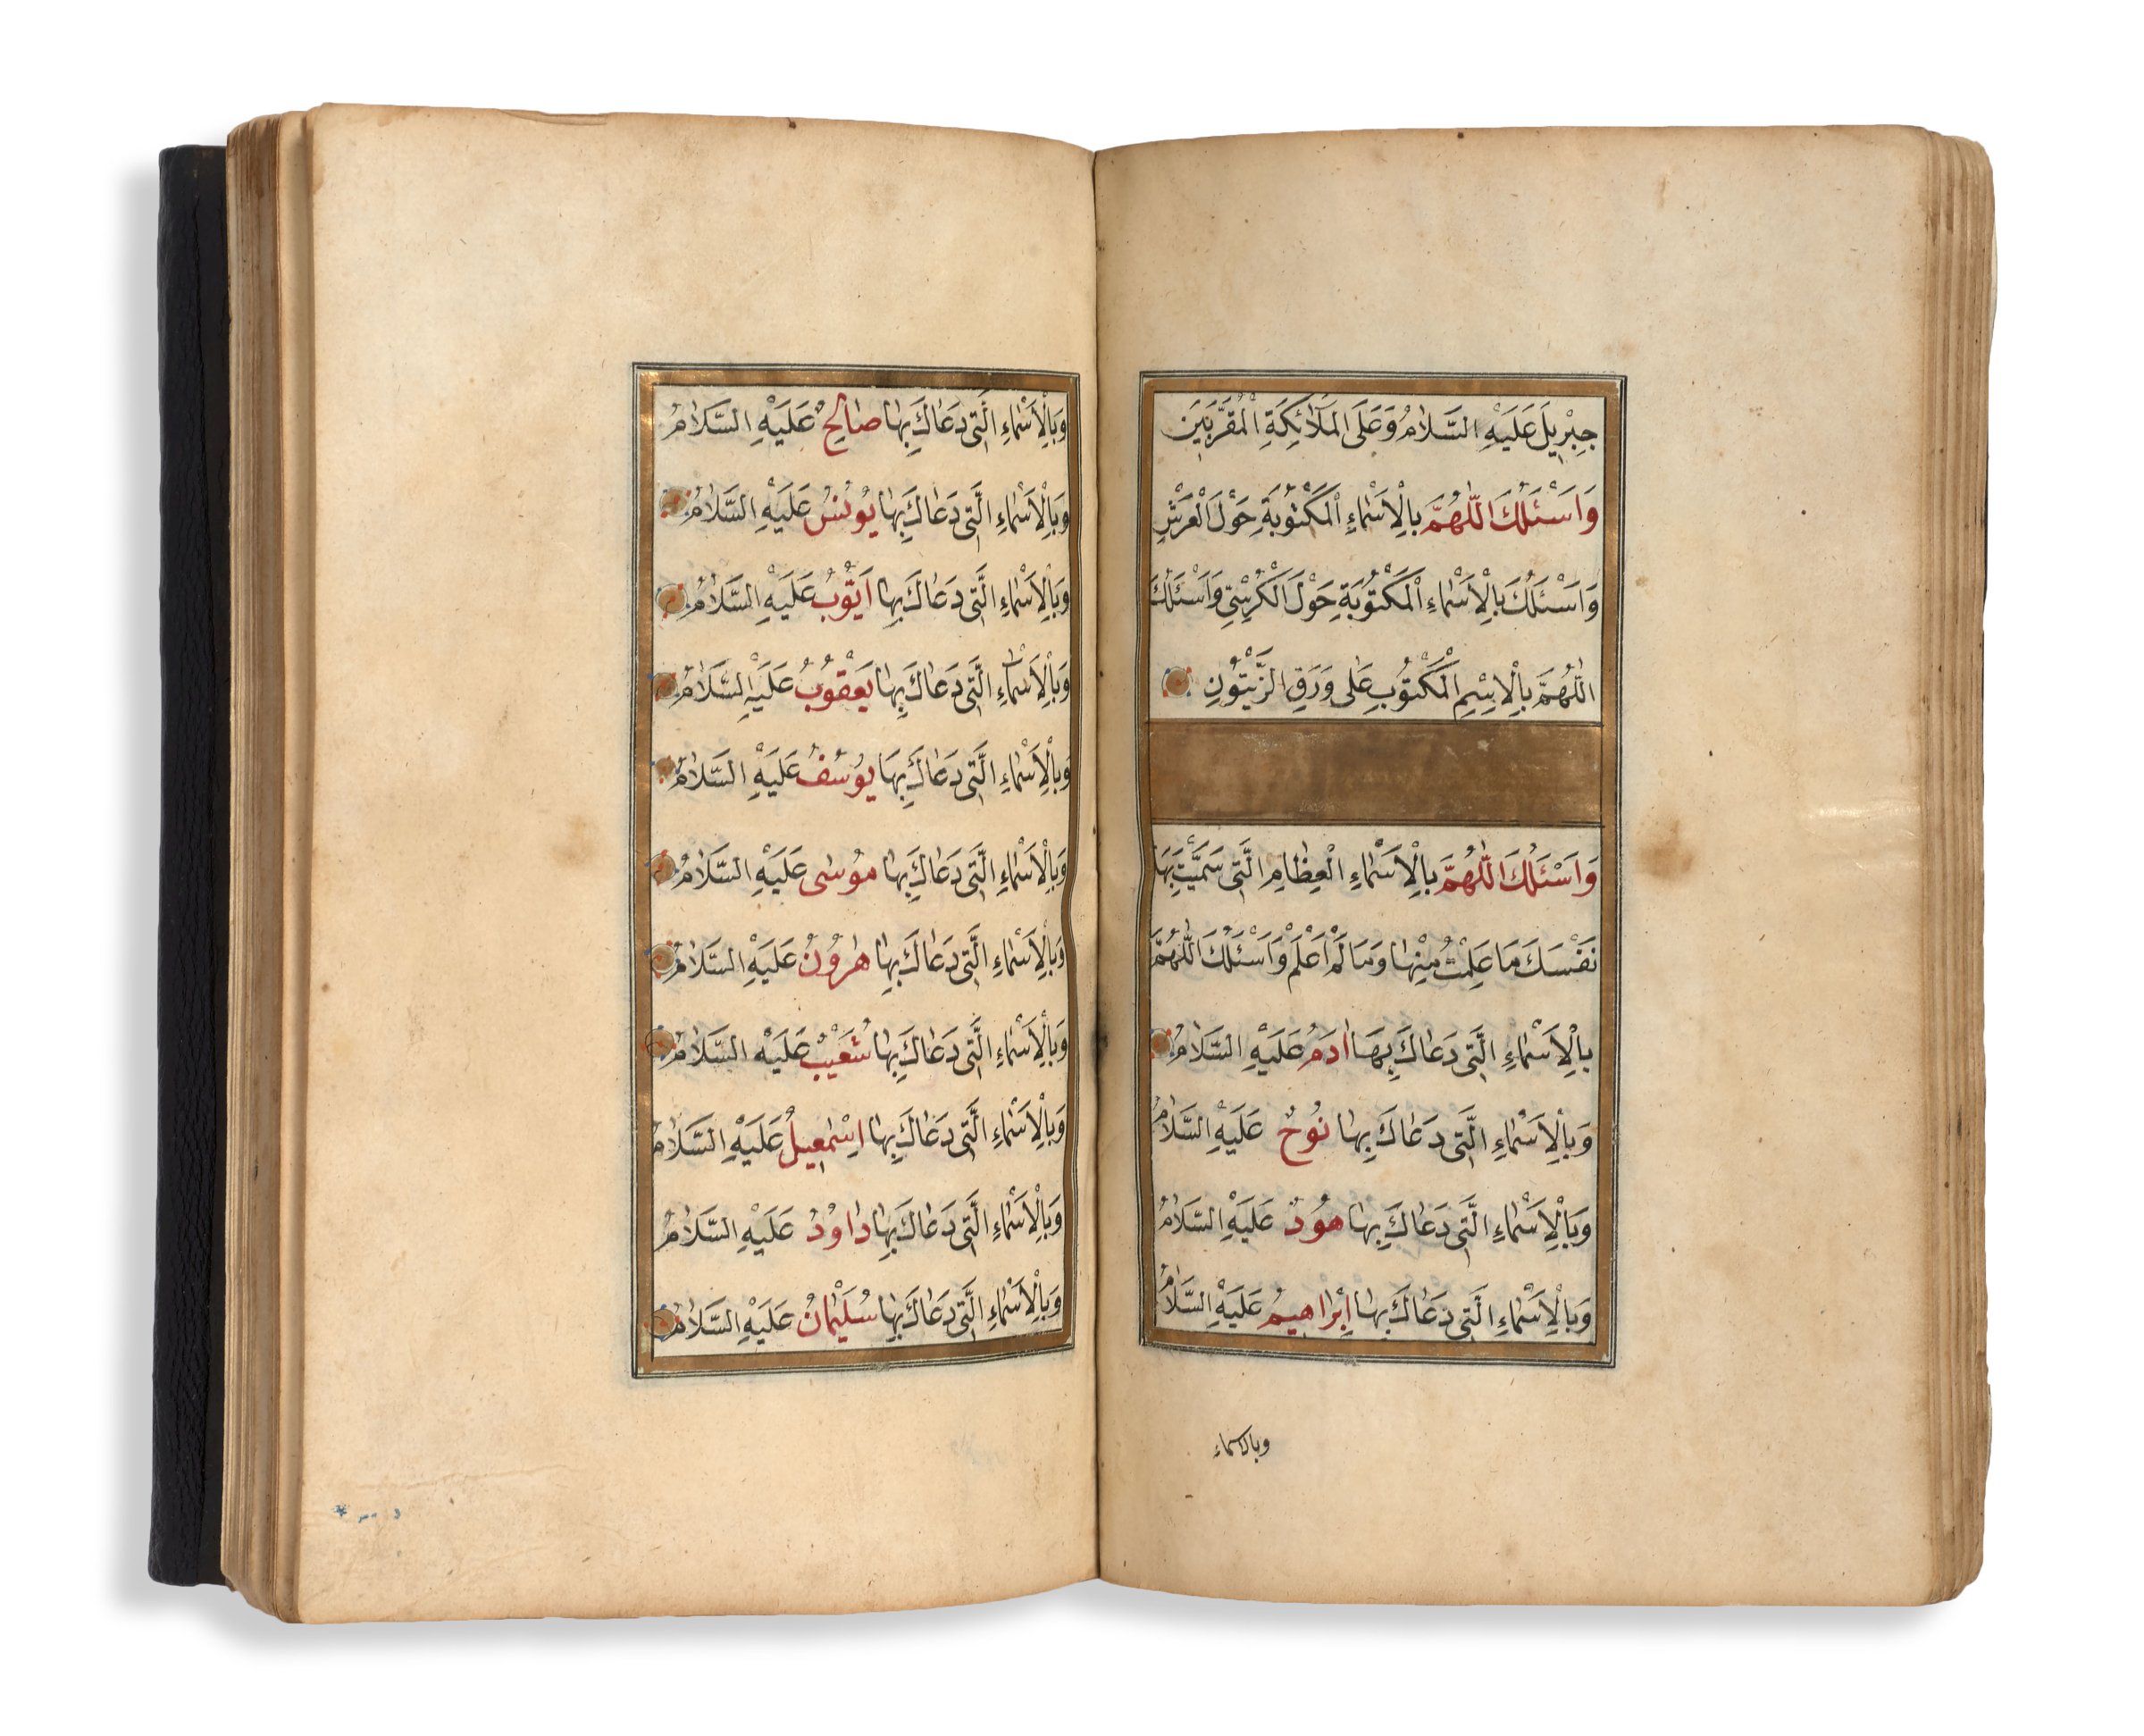 جِبْرِيلَ عَلَيْهِ السَّلَامُ وَعَلَى الْمَلَآئِكَةِ الْمُقَرَّبِينَ
وَاَسْئَلُكَ اللّٰهُمَّ بِالْاَسْمَاءِ الْمَكْتُوبَةِ حَوْلَ الْعَرْشِ
وَاَسْئَلُكَ بِالْاَسْمَاءِ الْمَكْتُوبَةِ حَوْلَ الْكُرْسِيِّ وَاَسْئَلُكَ
اللّٰهُمَّ بِالْاِسْمِ الْمَكْتُوبِ عَلٰى وَرَقِ الزَّيْتُونِ
وَاَسْئَلُكَ اللّٰهُمَّ بِالْاَسْمَاءِ الْعِظَامِ الَّتِى سَمَّيْتَ بِهَا
نَفْسَكَ مَا عَلِمْتُ مِنْهَا وَمَا لَمْ اَعْلَمْ وَاَسْئَلُكَ اللّٰهُمَّ
بِالْاَسْمَاءِ الَّتِى دَعَاكَ بِهَا اٰدَمُ عَلَيْهِ السَّلَامُ
وَبِالْاَسْمَاءِ الَّتِى دَعَاكَ بِهَا نُوحٌ عَلَيْهِ السَّلَامُ
وَبِالْاَسْمَاءِ الَّتِى دَعَاكَ بِهَا هُودٌ عَلَيْهِ السَّلَامُ
وَبِالْاَسْمَاءِ الَّتِى دَعَاكَ بِهَا اِبْرَاهِيمُ عَلَيْهِ السَّلَامُ
وبالاسماء
وَبِالْاَسْمَاءِ الَّتِى دَعَاكَ بِهَا صَالِحٌ عَلَيْهِ السَّلَامُ
وَبِالْاَسْمَاءِ الَّتِى دَعَاكَ بِهَا يُونُسُ عَلَيْهِ السَّلَامُ
وَبِالْاَسْمَاءِ الَّتِى دَعَاكَ بِهَا اَيُّوبُ عَلَيْهِ السَّلَامُ
وَبِالْاَسْمَاءِ الَّتِى دَعَاكَ بِهَا يَعْقُوبُ عَلَيْهِ السَّلَامُ
وَبِالْاَسْمَاءِ الَّتِى دَعَاكَ بِهَا يُوسُفُ عَلَيْهِ السَّلَامُ
وَبِالْاَسْمَاءِ الَّتِى دَعَاكَ بِهَا مُوسٰى عَلَيْهِ السَّلَامُ
وَبِالْاَسْمَاءِ الَّتِى دَعَاكَ بِهَا هٰرُونُ عَلَيْهِ السَّلَامُ
وَبِالْاَسْمَاءِ الَّتِى دَعَاكَ بِهَا شُعَيْبٌ عَلَيْهِ السَّلَامُ
وَبِالْاَسْمَاءِ الَّتِى دَعَاكَ بِهَا اِسْمٰعِيلُ عَلَيْهِ السَّلَامُ
وَبِالْاَسْمَاءِ الَّتِى دَعَاكَ بِهَا دَاوُدُ عَلَيْهِ السَّلَامُ
وَبِالْاَسْمَاءِ الَّتِى دَعَاكَ بِهَا سُلَيْمَانُ عَلَيْهِ السَّلَامُ